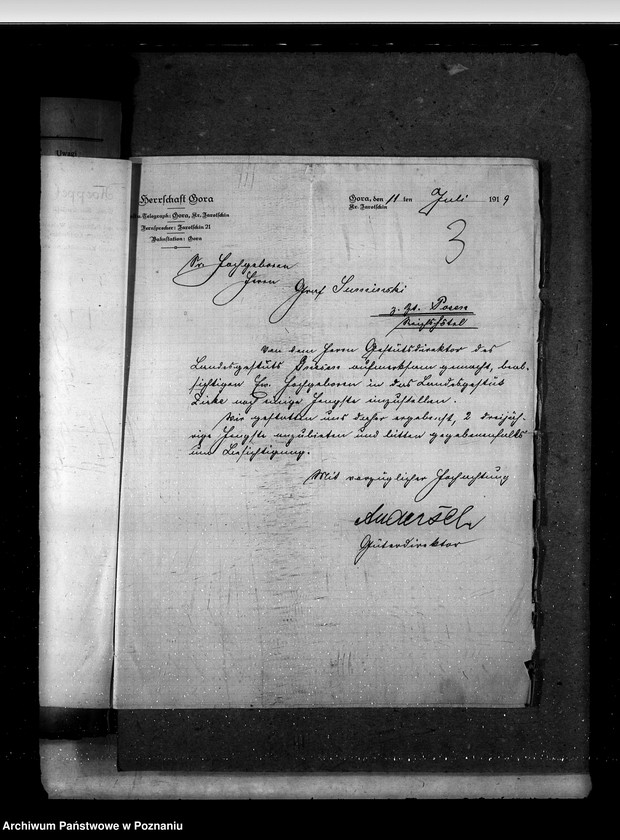 Uwagi
Herrschaft Gora
Telegraph: Gora, Kr. Jarotschin
Fernsprecher: Jarotschin 21
Bahnstation: Gora
Gora, den 11 ten Juli 1919
Kr. Jarotschin
3
Sr. Hochgeboren
Herrn
Graf Suminski
z. Zt. Posen
Reichshotel
Von dem Herrn Gestütsdirektor des
Landesgestüts Gnesen aufmerksam gemacht, beab-
sichtigen Ew. Hochgeboren in das Landesgestüt
Zirke noch einige Hengste einzustellen.
Wir gestatten uns daher ergebenst, 2 dreijäh-
rige Hengste anzubieten und bitten gegebenenfalls
um Besichtigung.
Mit vorzüglicher Hochachtung
Andersch
Güterdirektor
Archiwum Państwowe w Poznaniu